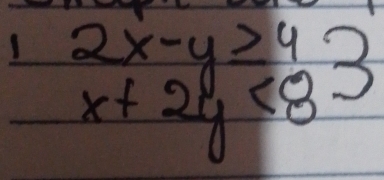 1 2x-y≥4 }
x+2y<8